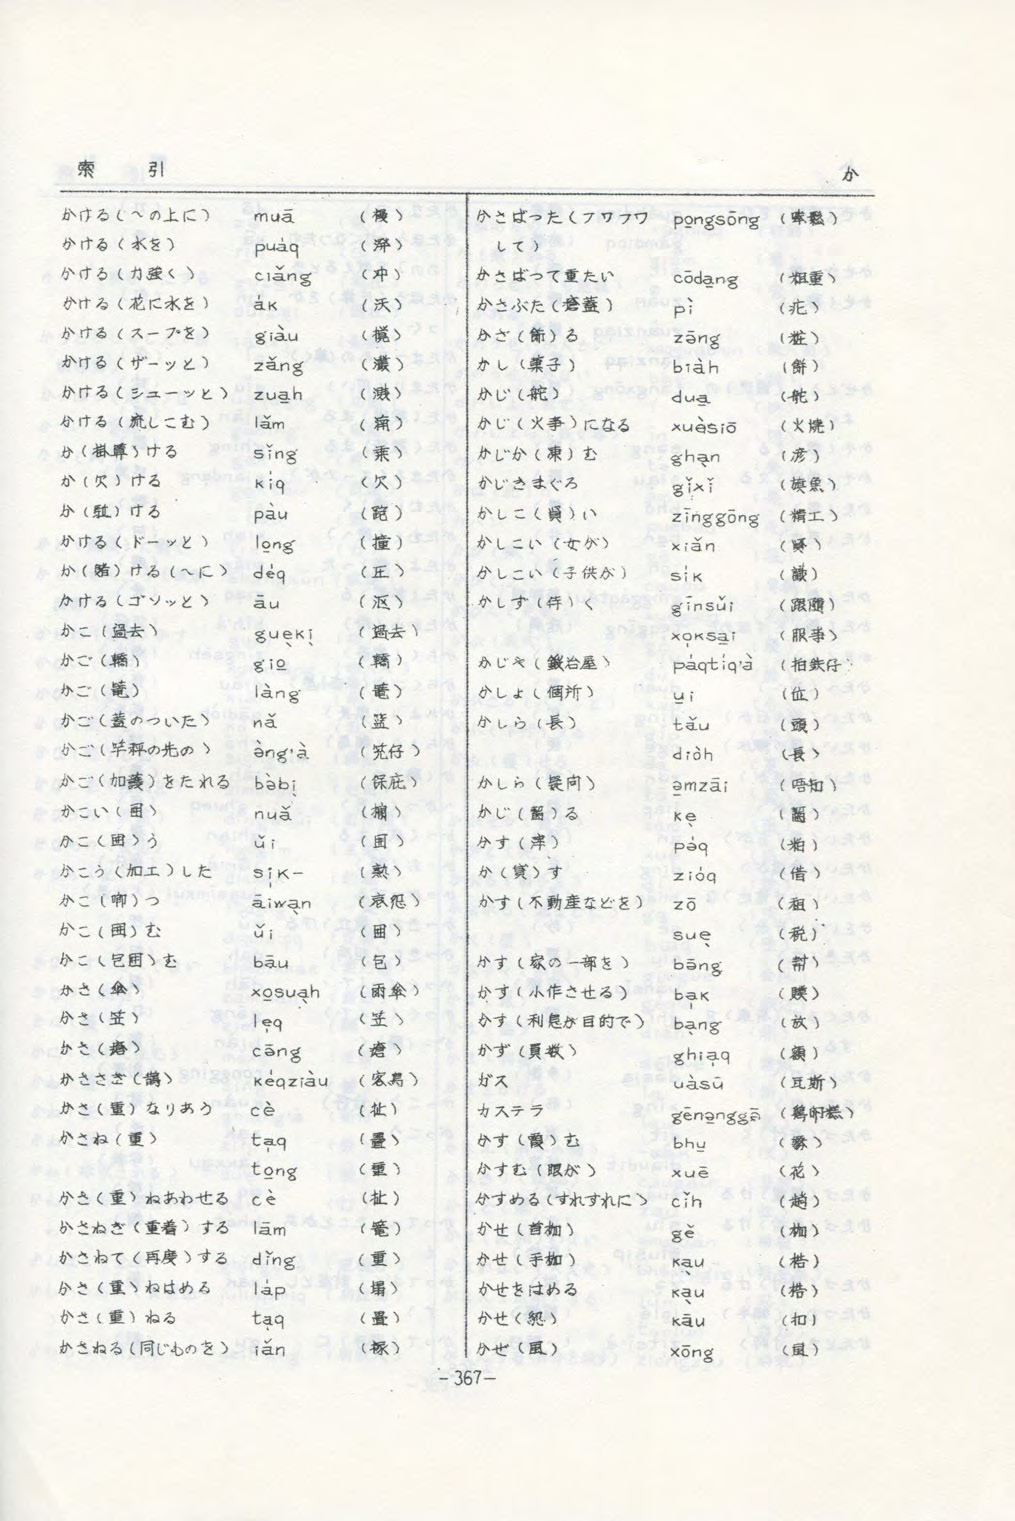 索 引
か
かける(〜の上に) muā
かける(水を) puàq (潑)
かける(力強く) ciǎng (冲)
かける(花に水を) ák (沃)
かける(スープを) giàu
かける(ザーッと) zǎng
かける(シューッと) zua̱h (濺)
かける(流しこむ) lǎm
か(掛算)ける sǐng (乗)
か(欠)ける kíq (欠)
か(駈)ける pàu (跑)
かける(ドーッと) lo̱ng (撞)
か(賭)ける(〜に) déq (圧)
かける(ゴソッと) āu
かこ(過去) gue̱kì̱ (過去)
かご(轎) gio̱ (轎)
かご(篭) làng (篭)
かご(蓋のついた) nǎ (篮)
àng'à
かご(加護)をたれる bə̀bì̱ (保庇)
かこい(囲) nuǎ (欄)
かこ(囲)う ǔi (囲)
かこう(加工)した si̍k- (熟)
かこ(喞)つ āiwàn (哀怨)
かこ(囲)む ǔi (囲)
かこ(包囲)む bāu (包)
かさ(傘) xo̱suàh (雨傘)
かさ(笠) le̍q (笠)
かさ(瘡) cāng
かささぎ(鵲) kéqziàu (客鳥)
かさ(重)なりあう cè
かさね(重) ta̍q (疊)
to̱ng (重)
かさ(重)ねあわせる cè
かさねぎ(重着)する lām
かさねて(再度)する dǐng (重)
かさ(重)ねはめる láp
かさ(重)ねる ta̍q (疊)
かさねる(同じものを) iǎn
かさばった(フワフワ po̱ngsōng
して)
かさばって重たい cōda̱ng (粗重)
かさぶた(瘡蓋) pì (疕)
かざ(飾)る zāng (粧)
かし(菓子) biàh (餅)
かじ(舵) dua̱ (舵)
かじ(火事)になる xuèsiō (火焼)
かじか(凍)む ghàn
かじきまぐろ gǐxǐ (旗魚)
かしこ(賢)い zīnggōng (精工)
かしこい(女が) xiǎn (賢)
かしこい(子供が) sík (識)
かしず(侍)く gīnsǔi (跟隨)
xo̍ksa̱i (服事)
かじや(鍛冶屋) páqtíq'à (拍鉄仔
かしょ(個所) u̱i (位)
かしら(長) tǎu (頭)
diòh (長)
かしら(疑問) ə̱mzāi (唔知)
かじ(齧)る kè (齧)
かす(滓) páq (粕)
か(貸)す zióq (借)
かす(不動産などを) zō (租)
suè (税)
かす(家の一部を) bāng (幇)
かす(小作させる) ba̍k (贌)
かす(利息が目的で) bàng (放)
かず(頁数) ghia̍q (額)
ガス uàsū (瓦斯)
カステラ gēnə̱nggə̄ (鶏卵糕)
かす(霞)む bhu̱ (霧)
かすむ(眼が) xuē (花)
かすめる(すれすれに) cǐh
かせ(首枷) gě (枷)
かせ(手枷) kàu (梏)
かせをはめる kàu (梏)
かせ(綛) kāu (扣)
かぜ(風) xōng (風)
-367-